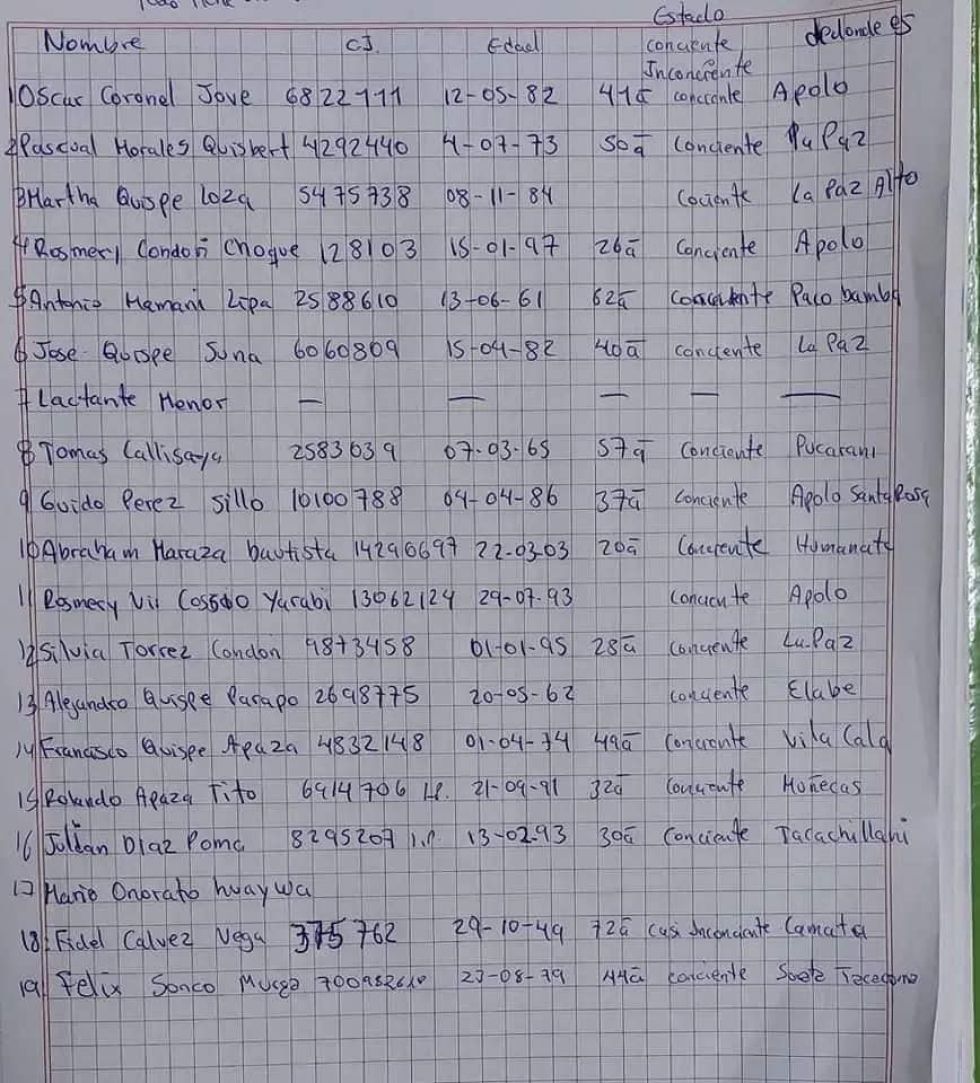 Estado
Nombre CI. Edad conciente dedonde es
Inconciente
1 Oscar Coronel Jove 6822111 12-05-82 41ā conciente Apolo
2 Pascual Morales Quisbert 4292440 4-07-73 50ā Conciente La Paz
3 Martha Quispe loza 5475738 08-11-84 Cociente La Paz Alto
4 Rosmery Condori Choque 128103 15-01-97 26ā Conciente Apolo
5 Antonio Mamani Lipa 2588610 13-06-61 62ā Conciente Paco bamba
6 Jose Quispe Suna 6060809 15-04-82 40ā conciente La Paz
7 Lactante Menor — — — — —
8 Tomas Callisaya 2583639 07-03-65 57ā Conciente Pucarani
9 Guido Perez Sillo 10100788 04-04-86 37ā Conciente Apolo Santa Rosa
10 Abraham Maraza bautista 14296697 22-03-03 20ā Conciente Humanata
11 Rosmery Vii Yarabi 13062124 29-07-93 conciente Apolo
12 Silvia Torrez Condori 9873458 01-01-95 28ā conciente La Paz
13 Alejandro Quispe Parapo 2698775 20-05-62 conciente Elabe
14 Francisco Quispe Apaza 4832148 01-04-74 49ā Conciente Vila Cala
15 Rolando Apaza Tito 6914706 LP. 21-09-91 32ā Conciente Moñecas
16 Julian Diaz Poma 8295207 L.P. 13-02-93 30ā Conciente Tacachillani
17 Mario Onorato huaywa
18 Fidel Calvez Vega 375762 29-10-49 72ā Casi Inconciente Camata
19 Felix Sonco 23-08-79 44ā conciente